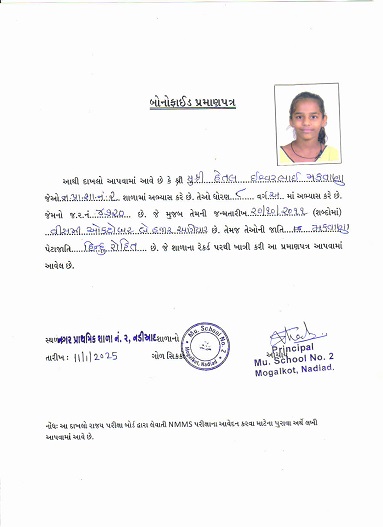 બોનોફાઈડ પ્રમાણપત્ર
આથી દાખલો આપવામાં આવે છે કે શ્રી કુ.શ્રી હેતલ ઈશ્વરભાઈ મકવાણા
જેઓ ન.પ્રા.શા.નં.૨ શાળામાં અભ્યાસ કરે છે. તેઓ ધોરણ વર્ગ અ માં અભ્યાસ કરે છે.
જેમનો જ.ર.નં. છે. જે મુજબ તેમની જન્મતારીખ ૨૦/૧૦/૨૦૧૧ (શબ્દોમાં)
વીસમી ઓક્ટોબર બે હજાર અગિયાર છે. તેમજ તેઓની જાતિ મકવાણા
પેટાજાતિ હિન્દુ રોહિત છે. જે શાળાના રેકર્ડ પરથી ખાત્રી કરી આ પ્રમાણપત્ર આપવામાં
આવેલ છે.
સ્થળ નગર પ્રાથમિક શાળા નં. ૨, નડીઆદ શાળાનો
તારીખ : 11/1/2025 ગોળ સિક્કો
Mu. School No. 2
Mogalkot, Nadiad.
આચાર્ય
Principal
Mu. School No. 2
Mogalkot, Nadiad.
નોંધઃ આ દાખલો રાજ્ય પરીક્ષા બોર્ડ દ્વારા લેવાતી NMMS પરીક્ષાના આવેદન કરવા માટેના પુરાવા અર્થે લખી
આપવામાં આવે છે.